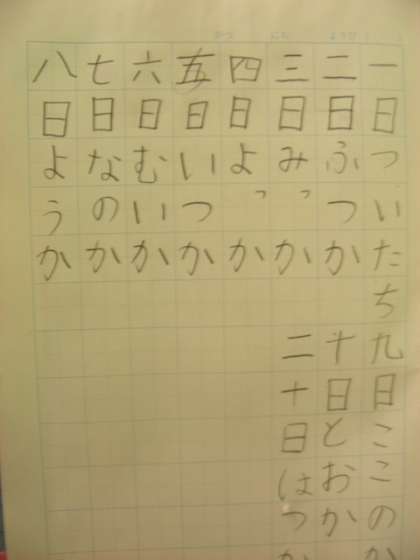 一日ついたち
九日ここのか
二日ふつか
十日とおか
三日みっか
二十日はつか
四日よっか
五日いつか
六日むいか
七日なのか
八日ようか